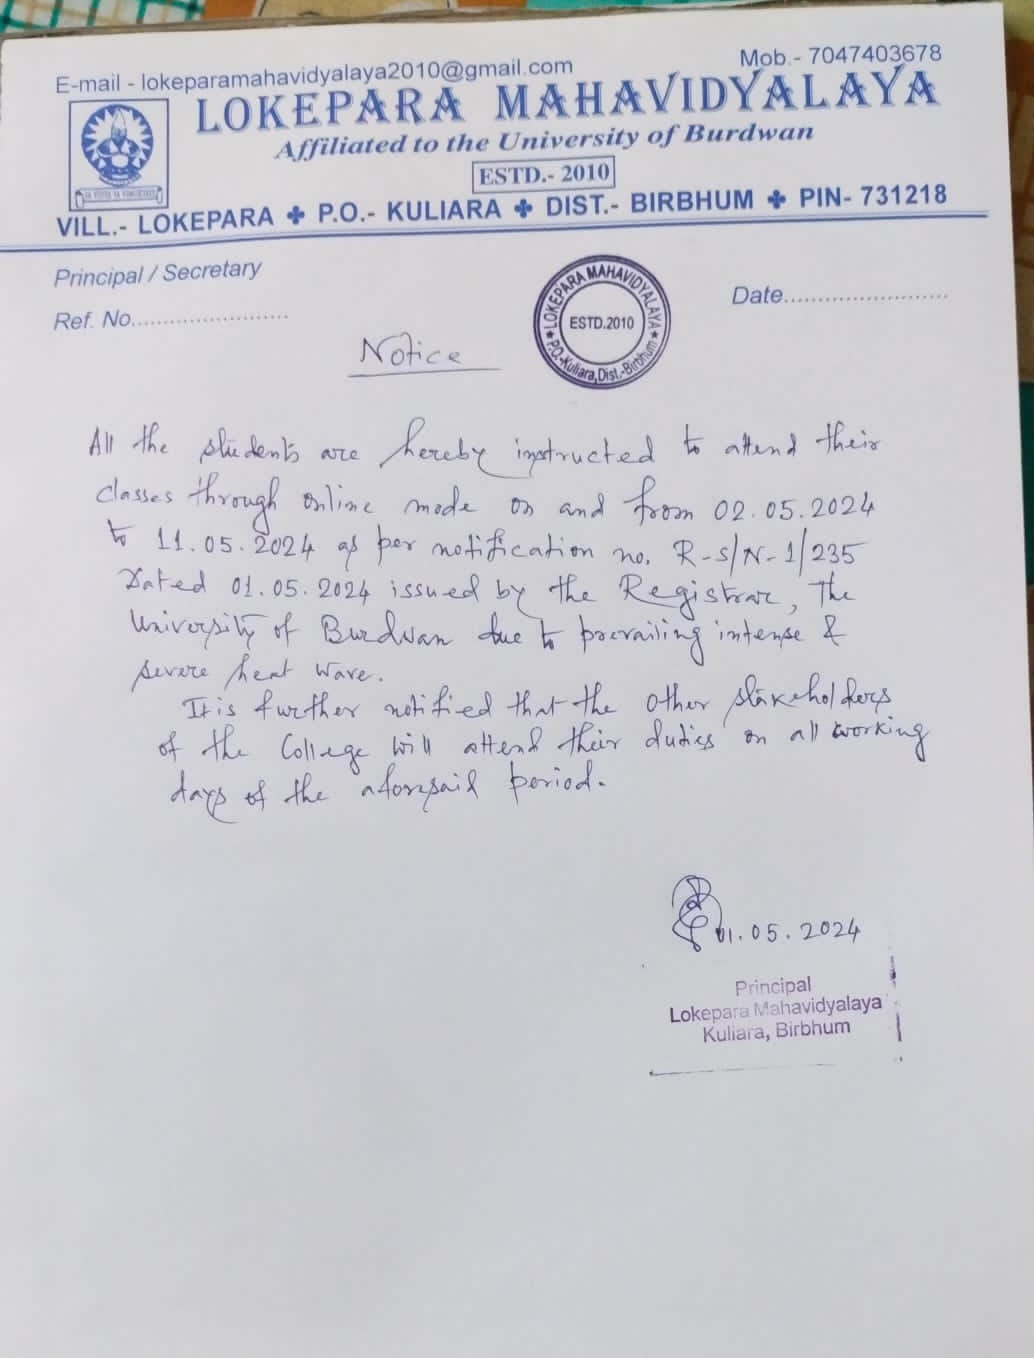 E-mail - lokeparamahavidyalaya2010@gmail.com
Mob.- 7047403678
LOKEPARA MAHAVIDYALAYA
Affiliated to the University of Burdwan
ESTD.- 2010
VILL.- LOKEPARA ✚ P.O.- KULIARA ✚ DIST.- BIRBHUM ✚ PIN- 731218
Principal / Secretary
Ref. No.......................
Date........................
LOKEPARA MAHAVIDYALAYA
ESTD.2010
★ P.O.-Kuliara, Dist.-Birbhum ★
Notice
All the students are hereby instructed to attend their
classes through online mode on and from 02.05.2024
to 11.05.2024 as per notification no. R-S/N-1/235
Dated 01.05.2024 issued by the Registrar, The
University of Burdwan due to prevailing intense &
severe heat wave.
It is further notified that the other stakeholders
of the College will attend their duties on all working
days of the aforesaid period.
01.05.2024
Principal
Lokepara Mahavidyalaya
Kuliara, Birbhum